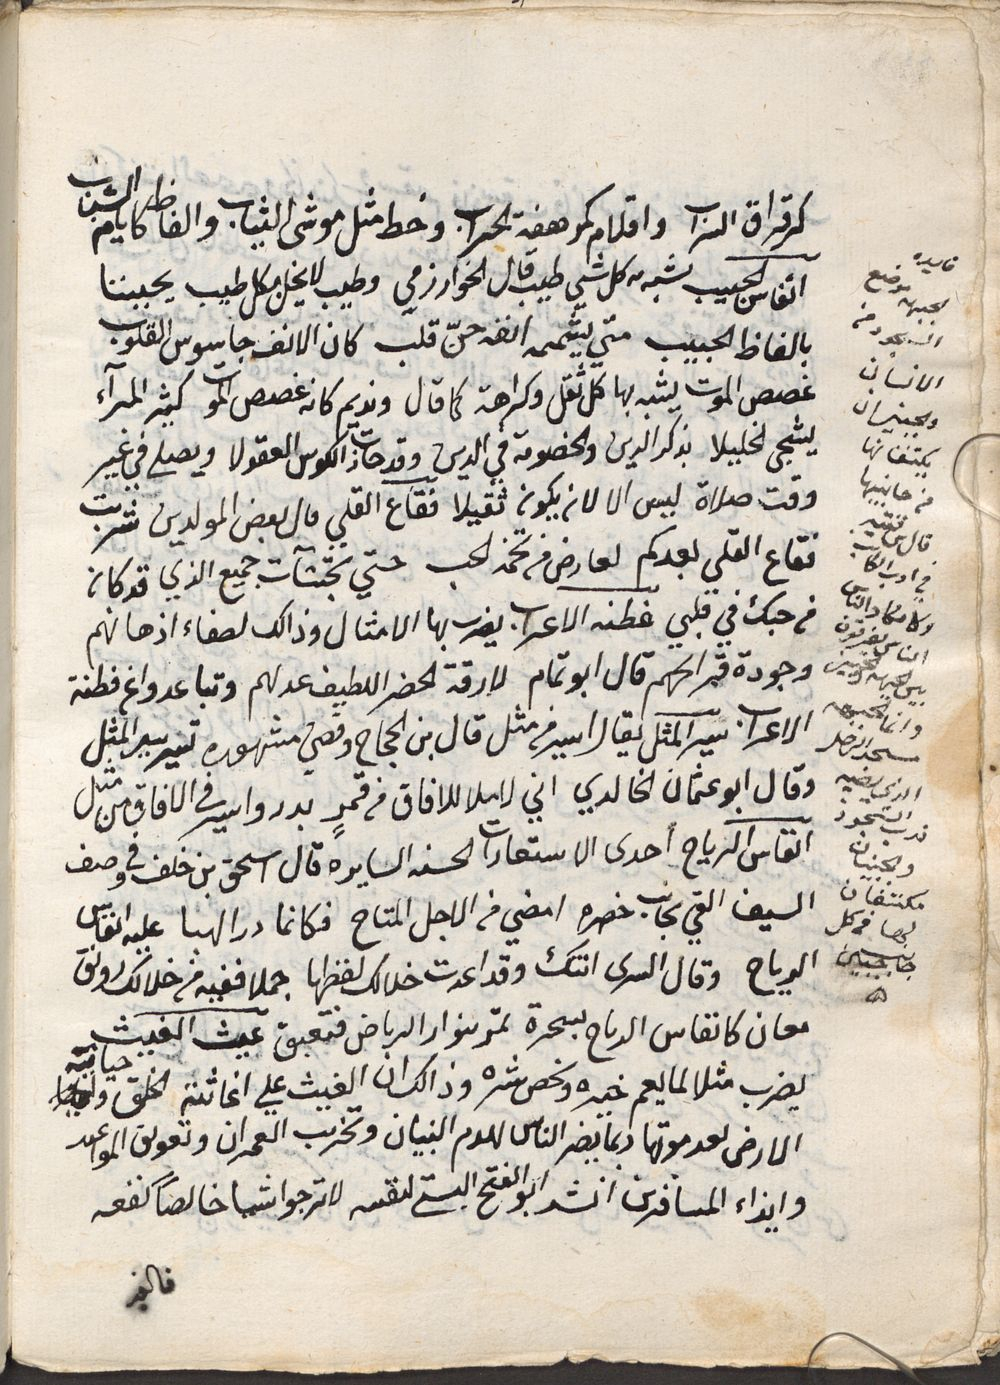 كرقراق السراب واقلام كمرهفة الحراب وخط مثل موشى الثياب والفاظ كايام الشباب
انفاس الحبيب يشبه به كل شي طيب قال الخوارزمي وطيب لا يخل بكل طيب يحييننا
بالفاظ الحبيب متي يشممه انف حنّ قلب كان الانف جاسوس القلوب
غصص الموت يشبه بها كل ثقل وكراهة كما قال ونديم كانه غصص الموت كثير المرآء
يشجي الخليلا بذكر الدين والخصومة في الدين وقد حاذت الكوس العقولا ويصلي في غير
وقت صلاة ليس الا لان يكون ثقيلا فقاع القلي قال بعض المولدين شربت
فقاع القلي بعدكم لعارض من تخمة الحب حتي تجشأت جميع الذي قد كان
من حبك في قلبي فطنه الاعراب يضرب بها الامثال وذالك لصفاء اذهانهم
وجودة قرايحهم قال ابو تمام لا رقة الحضر اللطيف غدتهم وتباعدوا عن فطنة
الاعراب سير المثل يقال اسير من مثل قال بن الحجاج وقصتي مشهوره تسير سير المثل
وقال ابو عثمان الخالدي اني لاملا للافاق من قمرٍ بدر واسير في الافاق من مثل
انفاس الرياح احدى الاستعارات الحسنه السايره قال اسحق بن خلف في وصف
السيف القي بجانب خصره امضي من الاجل المتاح فكانما ذر الهبا عليه انفاس
الرياح وقال السرى اتتك وقد اعدت خلالك لفظها جملا ففيه من خلالك رونق
معان كانفاس الرياح بسحرة تمر بنوار الرياض فتعبق غيث الغيث
يضرب مثلا لما يعم خيره ويخص شره وذالك ان الغيث علي اغاثته الخلق واحيائه
الارض بعد موتها ربما يضر الناس لهدم البنيان وتخريب العمران وتعويق المواعيد
وايذاء المسافرين انشد ابو الفتح البستي لنفسه لا ترجوا شيا خالصا نفعه
فالغيث
فايده
الجبهة موضع
السجود من
الانسان
والجبينان
يكتنفانها
من جانبيها
قال بن قتيبه
في ادب الكاتب
الناس يفرقون
بين الجبهه والجبين
وانما الجبهه
مسجد الرجل
الذي يصيبه
ندب السجود
والجبينان
مكتنفان
لها من كل
جانب جبين